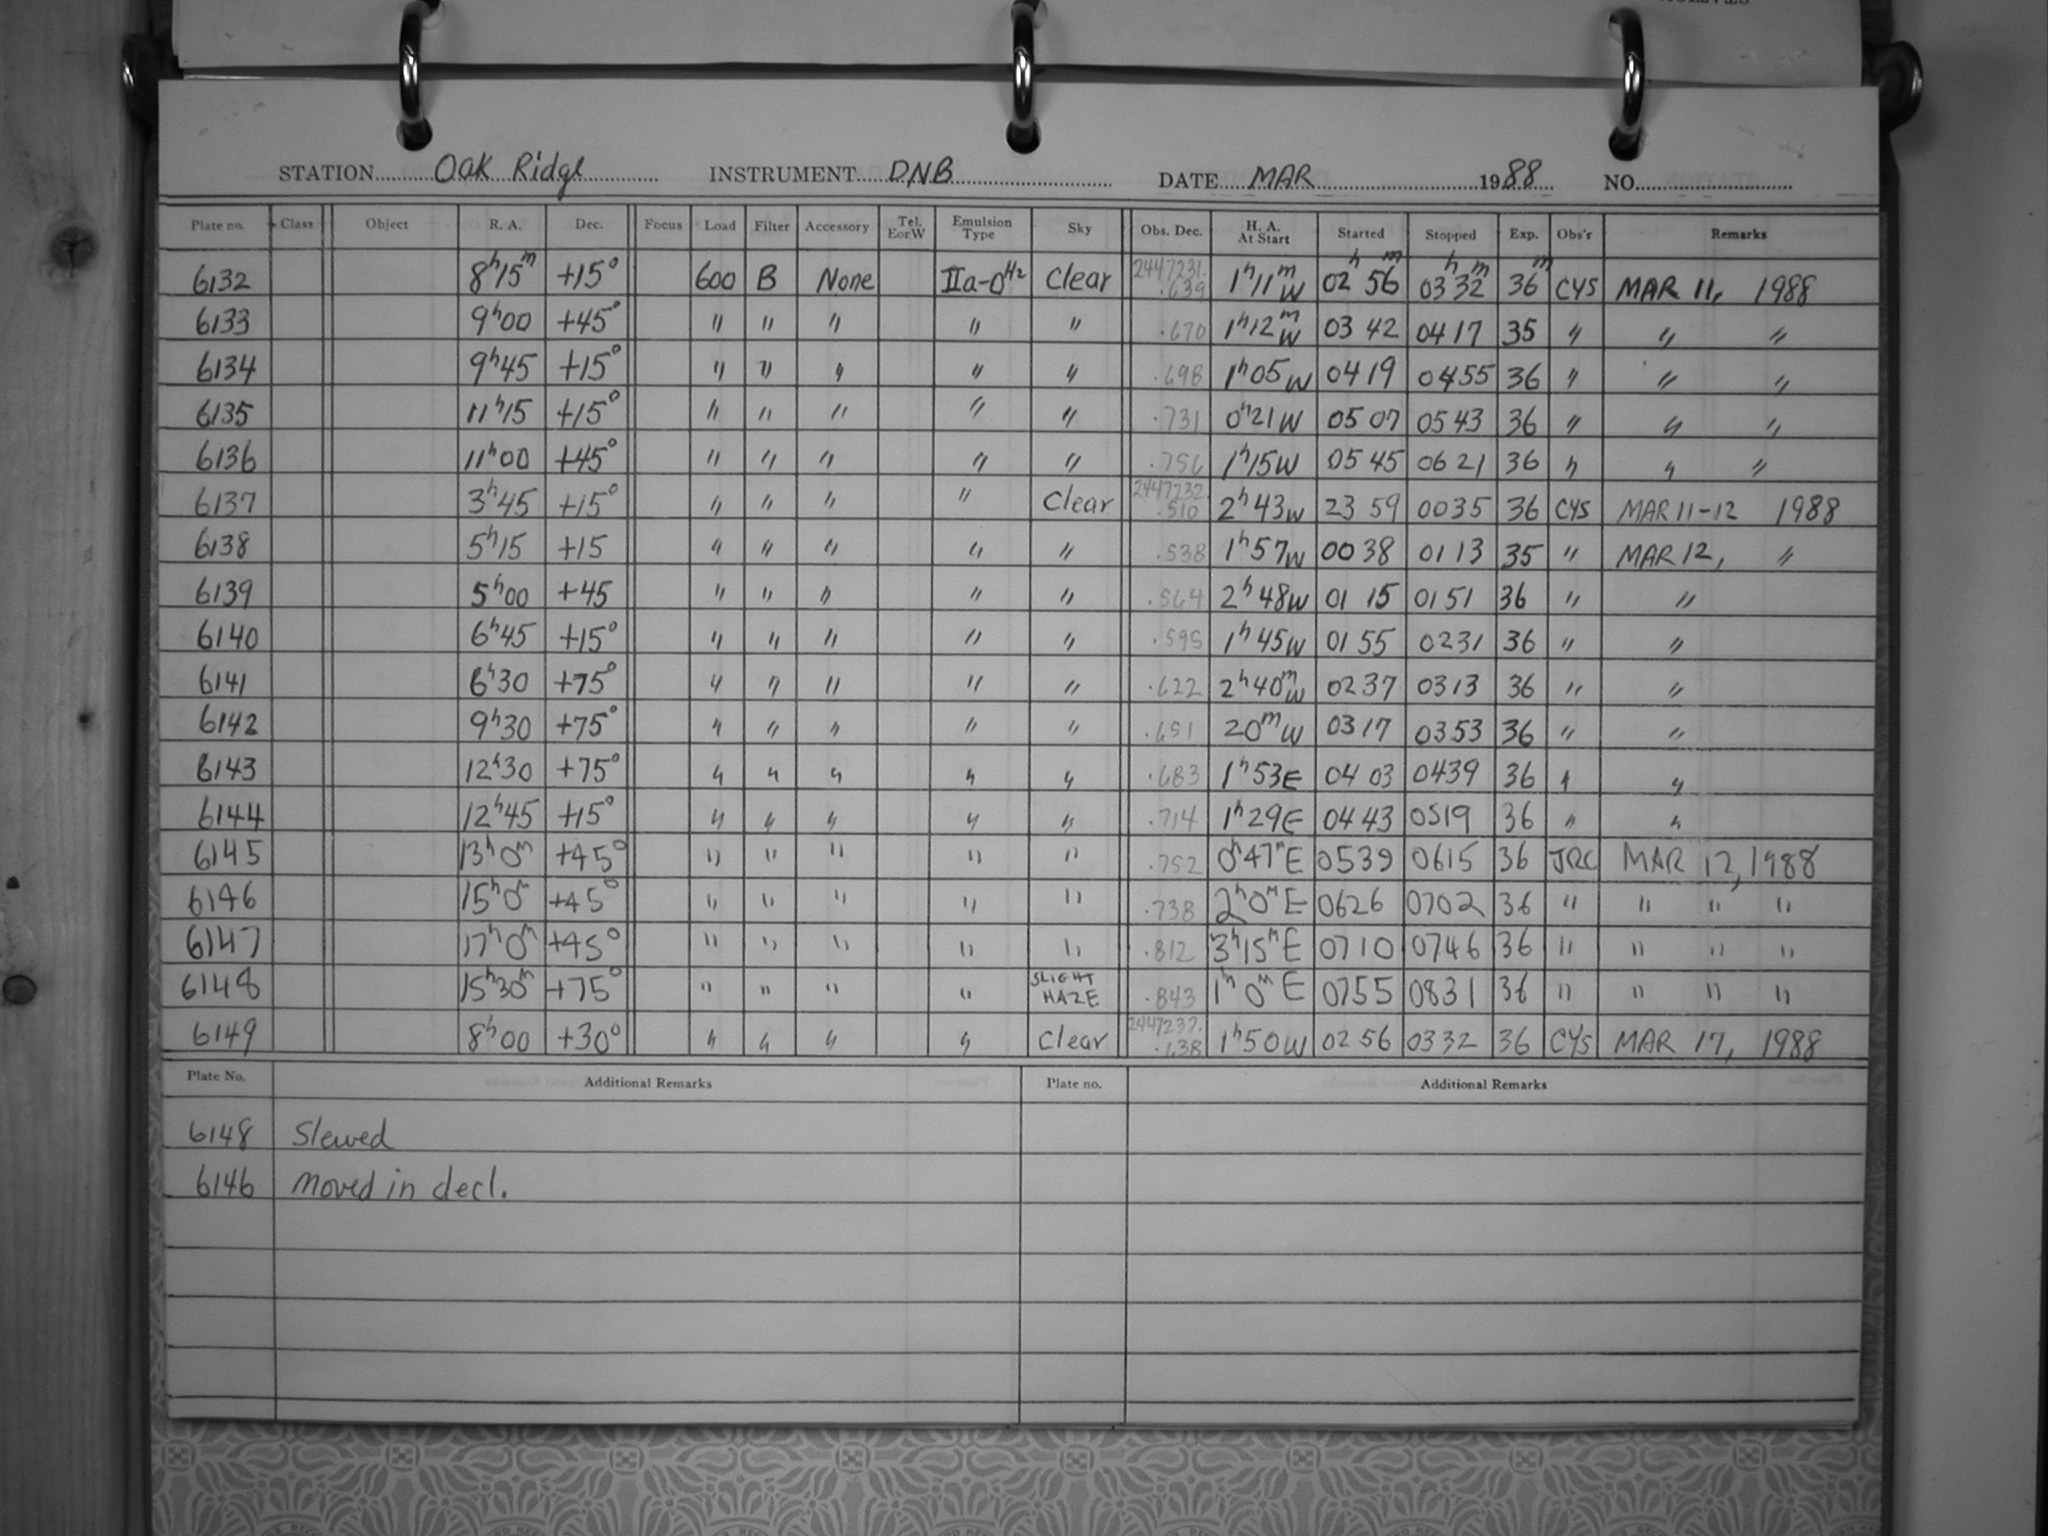 STATION Oak Ridge INSTRUMENT DNB DATE MAR 1988 NO.
Plate no. Class Object R. A. Dec. Focus Load Filter Accessory Tel. E or W Emulsion Type Sky Obs. Dec. H. A. At Start Started Stopped Exp. Obs'r Remarks
6132 8h15m +15° 600 B None IIa-O H2 Clear 2447231. .639 1h11m W 02h 56m 03h 32m 36m CYS MAR 11, 1988
6133 9h00 +45° " " " " " .670 1h12m W 03 42 04 17 35 " " "
6134 9h45 +15° " " " " " .698 1h05 W 04 19 04 55 36 " " "
6135 11h15 +15° " " " " " .731 0h21 W 05 07 05 43 36 " " "
6136 11h00 +45° " " " " " .756 1h15 W 05 45 06 21 36 " " "
6137 3h45 +15° " " " " Clear 2447232. .510 2h43 W 23 59 00 35 36 CYS MAR 11-12 1988
6138 5h15 +15 " " " " " .538 1h57 W 00 38 01 13 35 " MAR 12, "
6139 5h00 +45 " " " " " .564 2h48 W 01 15 01 51 36 " "
6140 6h45 +15° " " " " " .595 1h45 W 01 55 02 31 36 " "
6141 6h30 +75° " " " " " .622 2h40m W 02 37 03 13 36 " "
6142 9h30 +75° " " " " " .651 20m W 03 17 03 53 36 " "
6143 12h30 +75° " " " " " .683 1h53 E 04 03 04 39 36 " "
6144 12h45 +15° " " " " " .714 1h29 E 04 43 05 19 36 " "
6145 13h0m +45° " " " " " .752 0h47m E 0539 0615 36 JRC MAR 12, 1988
6146 15h0m +45° " " " " " .738 2h0m E 0626 0702 36 " " " "
6147 17h0m +45° " " " " " .812 3h15m E 0710 0746 36 " " " "
6148 15h30m +75° " " " " SLIGHT HAZE .843 1h0m E 0755 0831 36 " " " "
6149 8h00 +30° " " " " Clear 2447237. .638 1h50 W 02 56 03 32 36 CYS MAR 17, 1988
Plate No. Additional Remarks Plate no. Additional Remarks
6148 Slewed
6146 moved in decl.